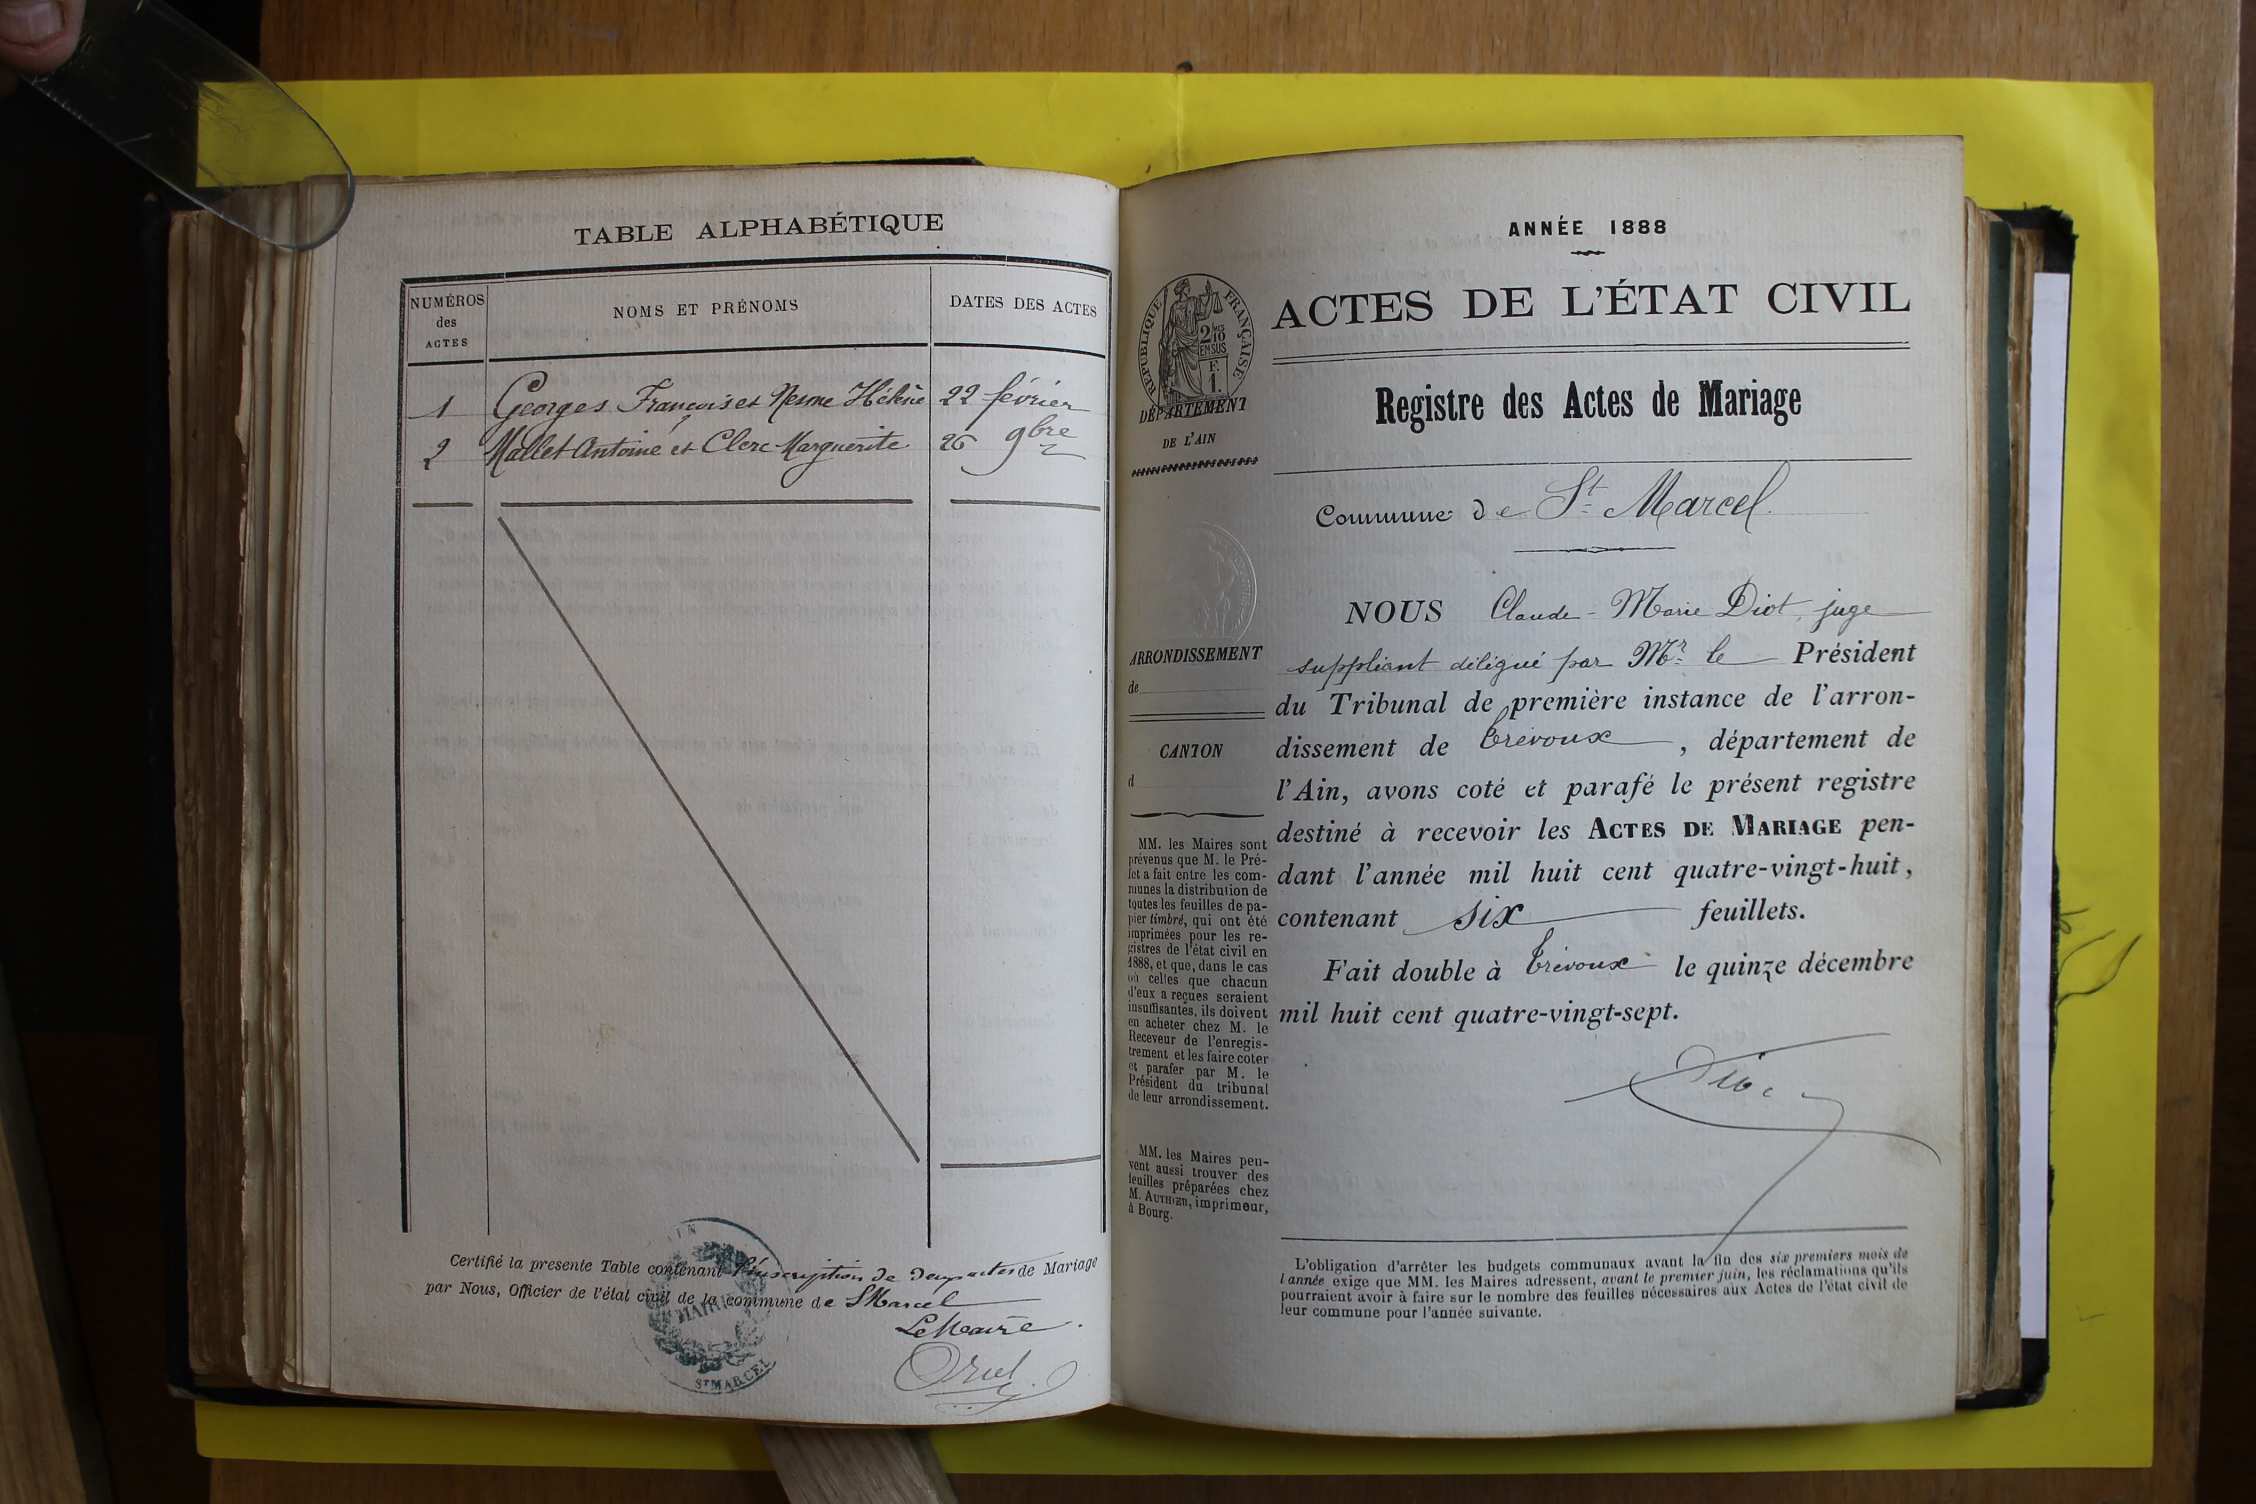 TABLE ALPHABÉTIQUE
NUMÉROS
des
ACTES
NOMS ET PRÉNOMS
DATES DES ACTES
1 Georges François et Nesme Hélène 22 février
2 Mallet Antoine et Clerc Marguerite 26 9bre
Certifié la presente Table contenant l'inscription de deux actes de Mariage
par Nous, Officier de l'état civil de la commune de St Marcel
Le Maire
Oriol
MAIRIE
AIN
ST MARCEL
ANNÉE 1888
RÉPUBLIQUE FRANÇAISE
2/10
EN SUS
F.
1.
DÉPARTEMENT
DE L'AIN
ACTES DE L'ÉTAT CIVIL
Registre des Actes de Mariage
Commune de St Marcel.
ARRONDISSEMENT
de
CANTON
d
MM. les Maires sont
prévenus que M. le Pré-
fet a fait entre les com-
munes la distribution de
toutes les feuilles de pa-
pier timbré, qui ont été
imprimées pour les re-
gistres de l'état civil en
1888, et que, dans le cas
où celles que chacun
d'eux a reçues seraient
insuffisantes, ils doivent
en acheter chez M. le
Receveur de l'enregis-
trement et les faire coter
et parafer par M. le
Président du tribunal
de leur arrondissement.
MM. les Maires peu-
vent aussi trouver des
feuilles préparées chez
M. AUTHIER, imprimeur,
à Bourg.
NOUS Claude-Marie Diot, juge
suppliant délégué par Mr le Président
du Tribunal de première instance de l'arron-
dissement de Trévoux, département de
l'Ain, avons coté et parafé le présent registre
destiné à recevoir les ACTES DE MARIAGE pen-
dant l'année mil huit cent quatre-vingt-huit,
contenant six feuillets.
Fait double à Trévoux le quinze décembre
mil huit cent quatre-vingt-sept.
Diot
L'obligation d'arrêter les budgets communaux avant la fin des six premiers mois de
l'année exige que MM. les Maires adressent, avant le premier juin, les réclamations qu'ils
pourraient avoir à faire sur le nombre des feuilles nécessaires aux Actes de l'état civil de
leur commune pour l'année suivante.